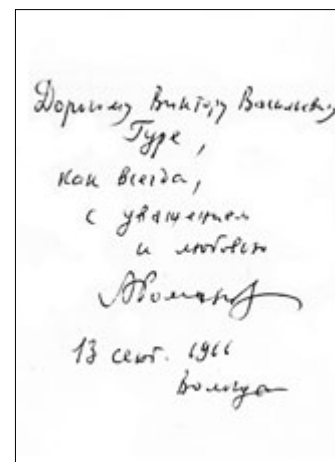 Дорогому Виктору Васильевичу
Гуре,
как всегда,
с уважением
и любовью
АРоманов
13 сент. 1966
Вологда